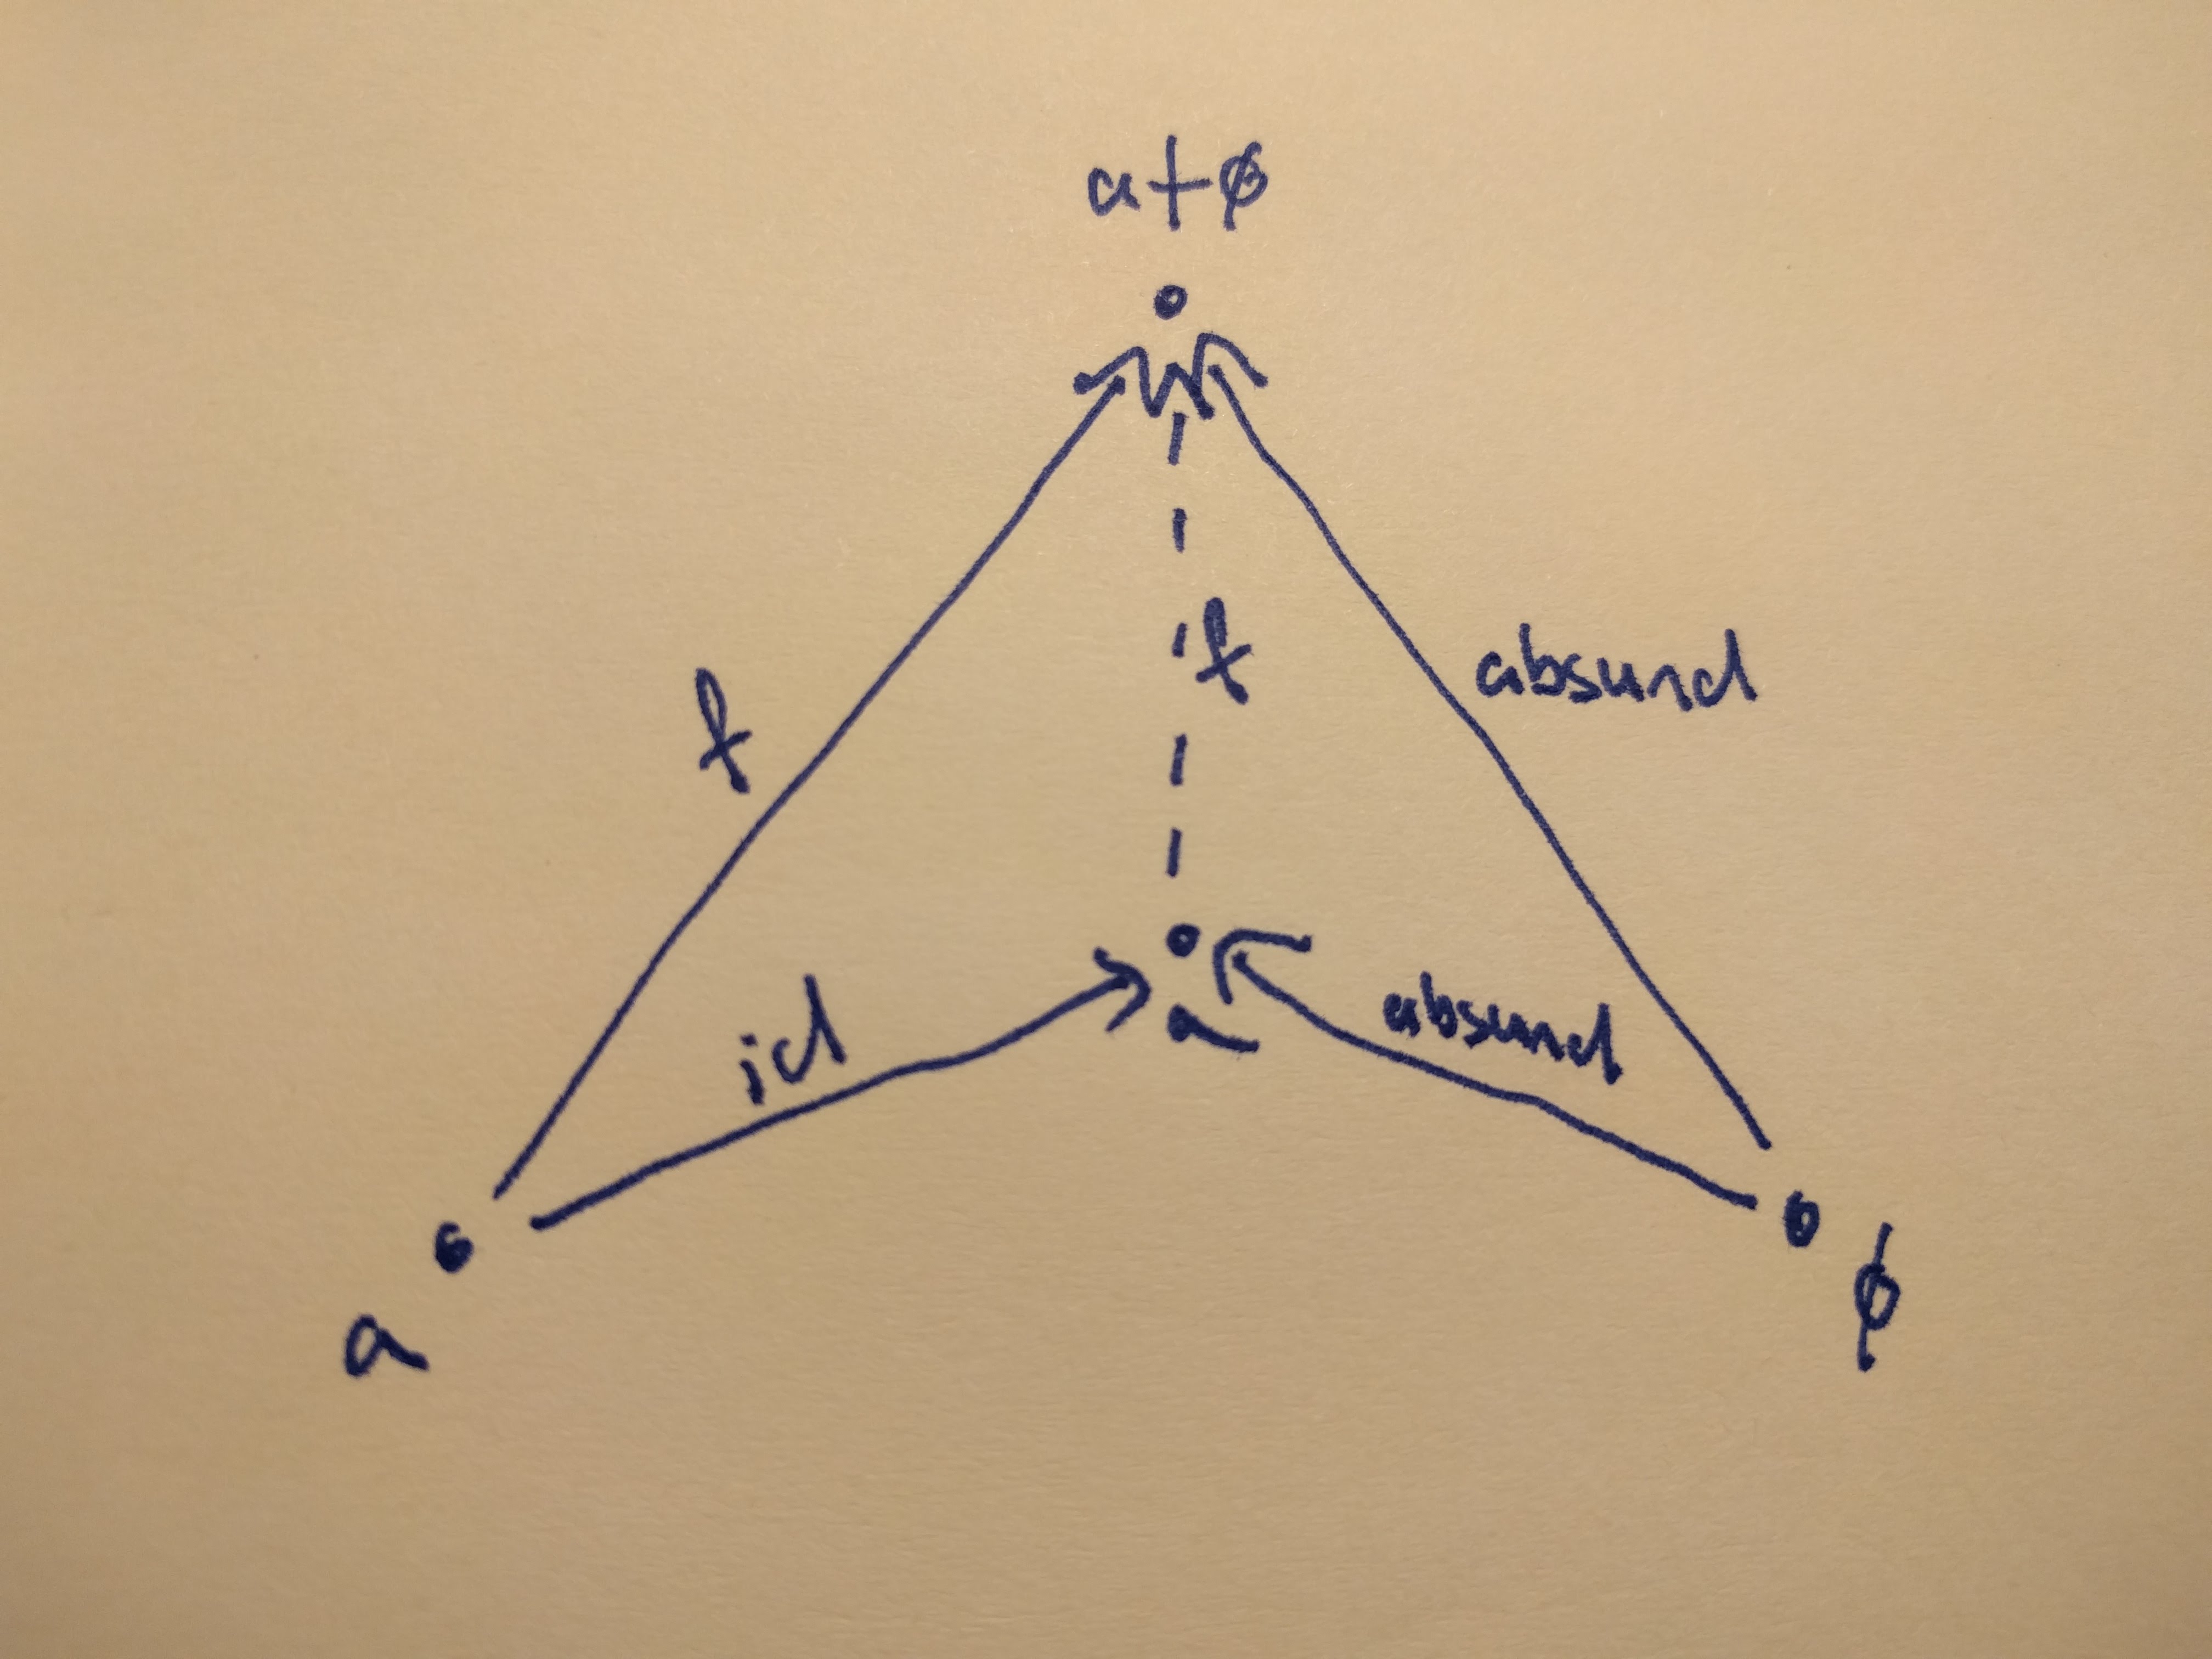 a+ø
f
absurd
f
id
a
absurd
a
ø